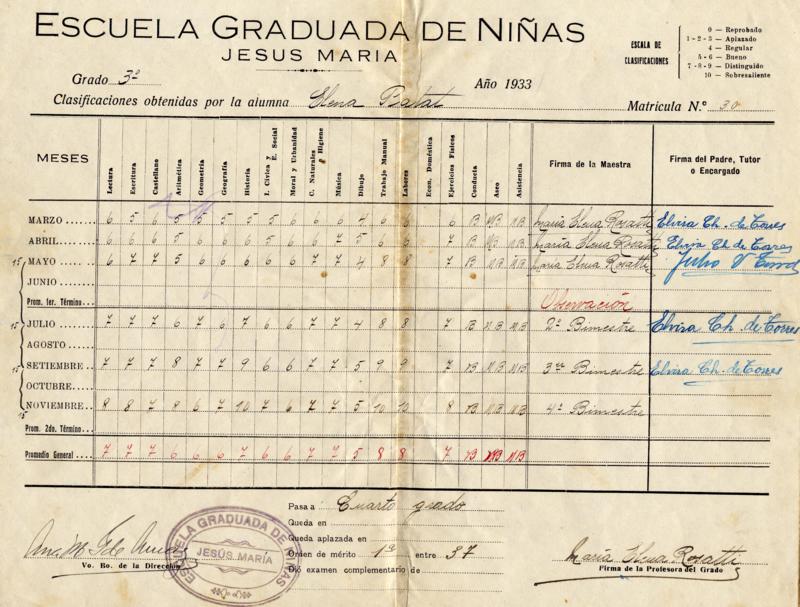 ESCUELA GRADUADA DE NIÑAS
JESUS MARIA
ESCALA DE CLASIFICACIONES
0 — Reprobado
1 - 2 - 3 — Aplazado
4 — Regular
5 - 6 — Bueno
7 - 8 - 9 — Distinguido
10 — Sobresaliente
Grado 3º Año 1933
Clasificaciones obtenidas por la alumna Elena Matricula N.º 30
MESES Lectura Escritura Castellano Aritmética Geometría Geografía Historia I. Cívica y E. Social Moral y Urbanidad C. Naturales Higiene Música Dibujo Trabajo Manual Labores Econ. Doméstica Ejercicios Físicos Conducta Aseo Asistencia Firma de la Maestra Firma del Padre, Tutor o Encargado
MARZO 6 5 6 5 5 5 5 5 6 6 6 4 6 6 6 B MB MB María Elena Rosatti Elvira Ch. de Torres
ABRIL 6 6 6 5 6 6 6 5 6 6 7 5 6 6 7 B MB MB María Elena Rosatti Elvira Ch de Torres
15 MAYO 6 7 7 5 6 6 6 6 6 7 7 4 8 8 7 B MB MB María Elena Rosatti Julio V
JUNIO
Prom. 1er. Término Observación
15 JULIO 7 7 7 6 7 6 7 6 6 7 7 4 8 8 7 B MB MB 2º Bimestre Elvira Ch. de Torres
AGOSTO
15 SETIEMBRE 7 7 7 8 7 7 9 6 6 7 7 5 9 9 7 B MB MB 3er Bimestre Elvira Ch. de Torres
OCTUBRE
15 NOVIEMBRE 8 8 7 9 6 7 10 7 6 7 7 5 10 10 8 B MB MB 4º Bimestre
Prom. 2do. Término
Promedio General 7 7 7 6 6 6 7 6 6 7 7 5 8 8 7 B MB MB
Pasa a Cuarto grado
Queda en
Queda aplazada en
Orden de mérito 1ª entre 37
Dió examen complementario de
Vo. Bo. de la Dirección
ESCUELA GRADUADA DE NIÑAS
JESÚS MARÍA
María Elena Rosatti
Firma de la Profesora del Grado